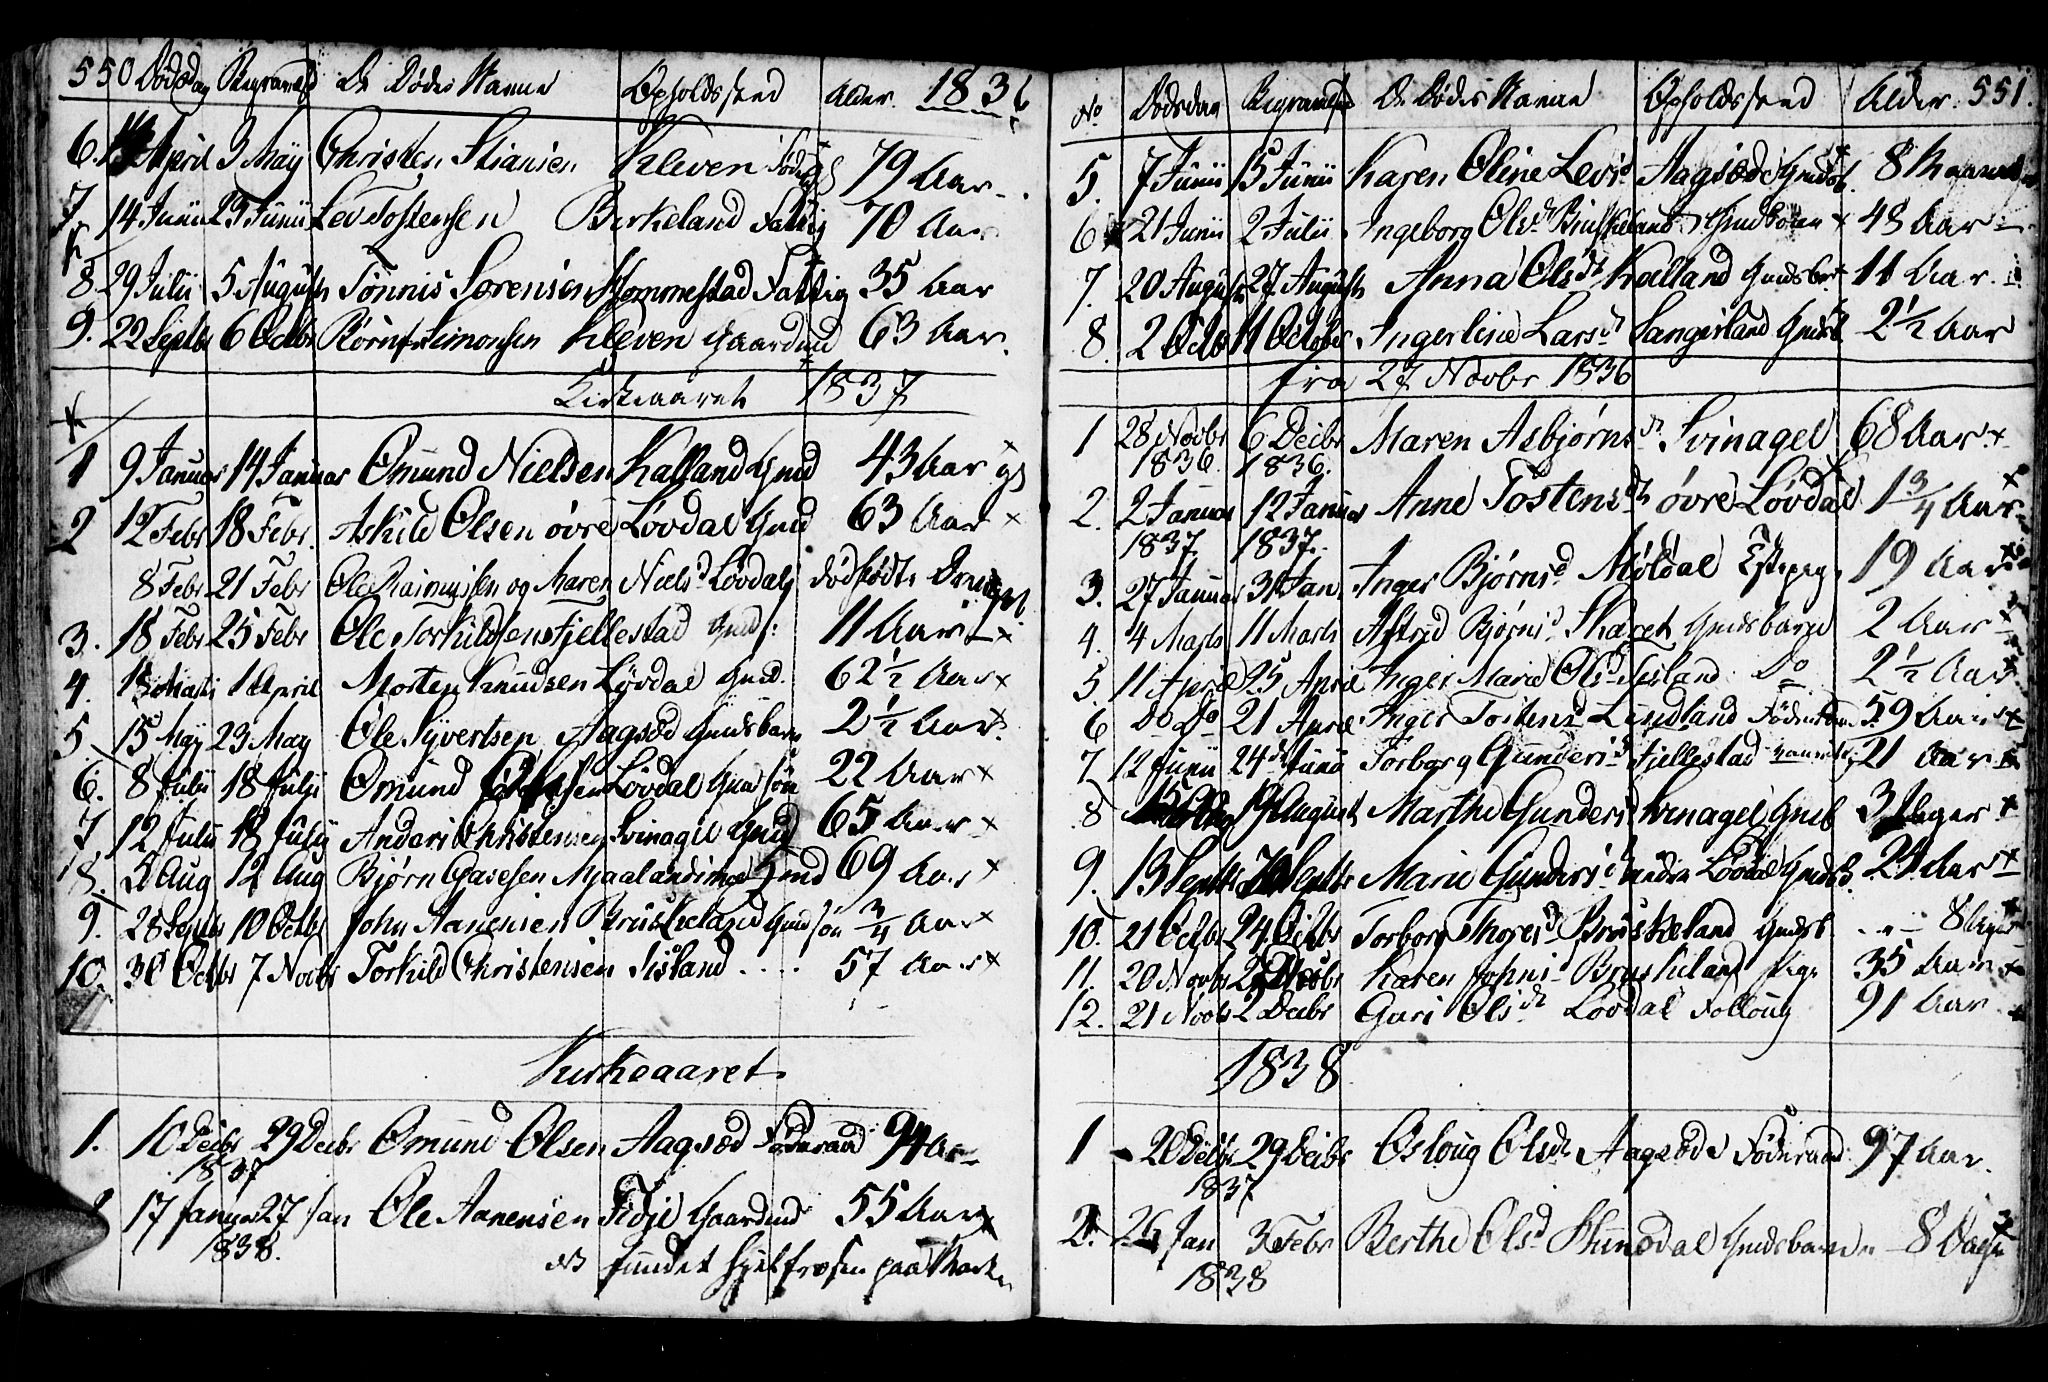 550 Dødsdag Begravels De Dødes Navne Opholdssted Alder. 1836
6. April 3 Maÿ Christen Stiansen Kleven 79 Aar
7 14 Junii 23 Junii Lev Tostensen Birkeland Fattig 70 Aar
8. 29 Julii 5 August Tønnis Sørensen Hommestad Fattig 35 Aar
9. 22 Septbr 6 Octbr Børn Simonsen Kleven Gaardmd 63 Aar.
Kirkeaaret 1837
1 9 Januar 14 Januar Omund Nielsen Kalland Gmd 43 Aar
2 12 Febr 18 Febr. Askild Olsen øvre Løvdal Gmd 63 Aar
8 Febr 21 Febr Ole Rasmussen og Maren Niels Løvdals dødfødte
3. 18 Febr 25 Febr Ole Torkildsen Fjellestad 11 Aar
4. 1 April Morten Knudsen Løvdal Gmd. 62 1/2 Aar
5 15 Maÿ 23 Maÿ Ole Syvertsen Aagsød Gmdsbarn 2 1/2 Aar
6. 8 Julii 18 Julii Omund Løvdal Gmd søn 22 Aar
7 12 Julii 18 Julii Anders Christensen Svinagel Gmd 65 Aar
8. 5 Aug 12 Aug Bjørn Aasesen Gmd 69 Aar
9. 28 Septbr 10 Octbr John Aanensen Bruskeland Gmd søn 3/4 Aar
10. 30 Octbr 7 Novbr Torkild Christensen Tisland .... 57 Aar
Kirkeaaret
1. 10 Decbr 29 Decbr Omund Olsen Aagsød Føderaad 94 Aar
1837
17 Januar 27 Jan Ole Aanensen Fidje Gaardmd 55 Aar
1838.
NB fundet ihjelfrosen paa Marken
No Dødsdag Begravelse De Dødes Navne Opholdssted Alder. 551.
5. 7 Junii 15 Junii Karen Oline Levsd Aagsøde 8 Maaneder
6 21 Junii 2 Julii Ingeborg Olsdr Bruskeland 43 Aar
7. 20 August 27 August Anna Olsdr Kalland Gmdsbarn 11 Aar.
8. 2 Octbr 11 October Ingerline Larsdr Sangesland 2 1/2 Aar
fra 27 Novbr 1836
1 28 Novbr 6 Decbr Maren Asbjørnsdr Svinagel 68 Aar
1836. 1836.
2. 2 Januar 12 Januar Anne Tostensdr øvre Løvdal 1 3/4 Aar
1837. 1837.
3. 27 Januar 31 Jan. Inger Bjørnsd 19 Aar
4. 4 Marts 11 Marts Astrid Bjørnsd Skaret Gmdsbarn 2 Aar
5 11 April 25 April Inger Marie Olsd Tisland Do 2 1/2 Aar
6 Do Do 21 April Inger Tostensd Lindland 59 Aar
7 12 Junii 24de Junii Torborg Gundersd Fjellestad 21 Aar
8 19 August Marthe Gundersd Svinagel Gmdb 3 Uger
9. 13 Septbr Septbr Marie Gundersd nedre Løvdal Aar
10. 21 Octbr 24 Octbr Torborg Bruskeland Gmdsb 8 Uger
11. 20 Novbr Novbr Karen Johnsd Bruskeland Pige 35 Aar
12. 21 Novbr 2 Decbr Guri Olsdr Løvdal 91 Aar
1838
1 20 Decbr 29 Decbr Osloug Olsdr Aagsøde Føderaad 97 Aar.
1837
2. 26 Jan 3 Febr Berthe Olsd Gmdsbarn 8 Dage
1838